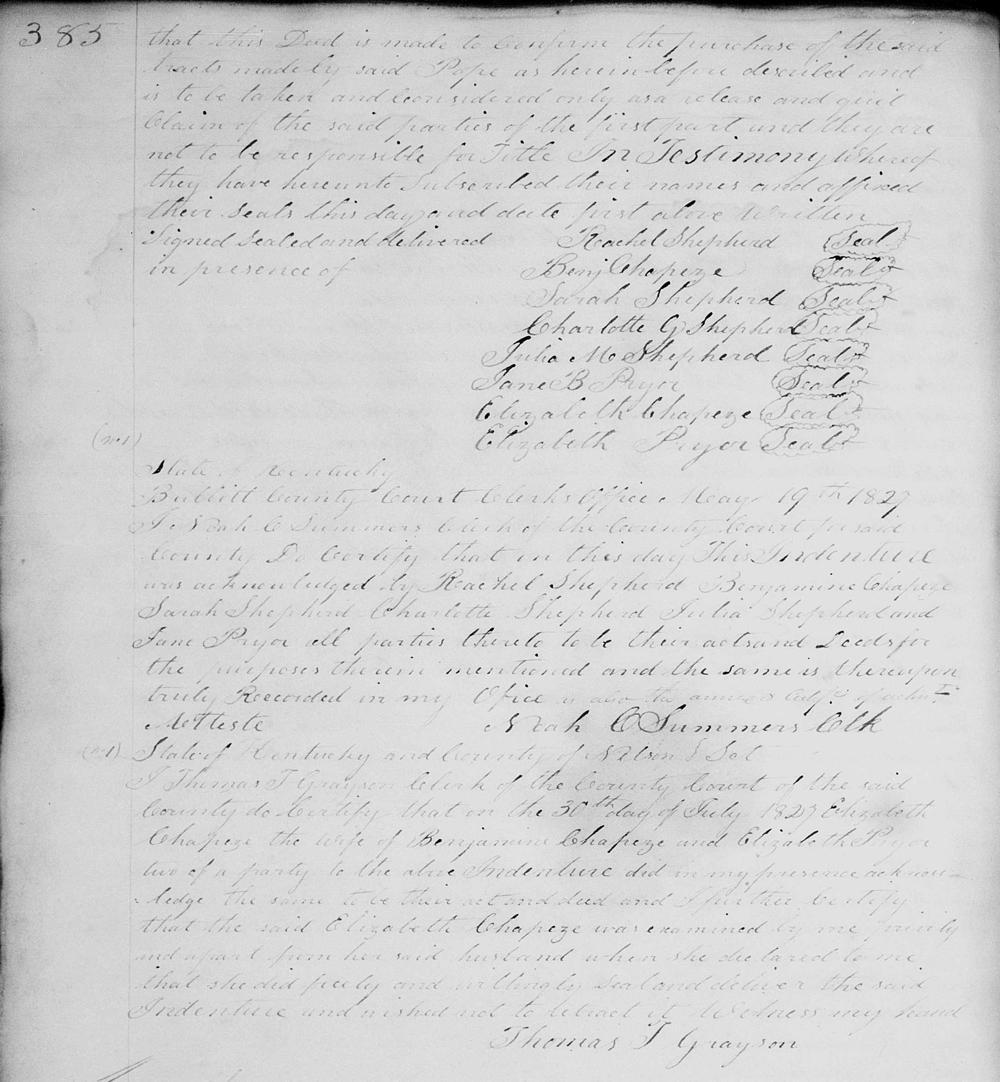 385
that this Deed is made to Confirm the purchase of the said
tracts made by said Pope as herein before described and
is to be taken and Considered only as a release and quit
Claim of the said parties of the first part and they are
not to be responsible for Title In Testimony Whereof
they have hereunto Subscribed their names and affixed
their Seals this day and date first above Written
Signed Sealed and delivered Rachel Shepherd Seal
in presence of Benj Chapeze Seal
Sarah Shepherd Seal
Charlotte G Shepherd Seal
Julia M Shepherd Seal
Jane B Pryor Seal
Elizabeth Chapeze Seal
(no 1) Elizabeth Pryor Seal
State of Kentucky
Bullitt County Court Clerks Office May 19th 1827
I Noah C Summers Clerk of the County Court for said
County Do Certify that on this day This Indenture
was acknowledged by Rachel Shepherd Benjamine Chapeze
Sarah Shepherd Charlotte Shepherd Julia Shepherd and
Jane Pryor all parties thereto to be their acts and Deeds for
the purposes therein mentioned and the same is thereupon
truly Recorded in my Office is also the annexed
Atteste Noah C Summers Clk
(no 1) State of Kentucky and County of Nelson Sct
I Thomas T Grayson Clerk of the County Court of the said
County do Certify that on the 30th day of July 1827 Elizabeth
Chapeze the wife of Benjamine Chapeze and Elizabeth Pryor
two of a party to the above Indenture did in my presence acknow-
ledge the same to be their act and deed and I further Certify
that the said Elizabeth Chapeze was examined by me privily
and apart from her said husband when she declared to me
that she did freely and willingly Seal and deliver the said
Indenture and wished not to retract it Witness my hand
Thomas T Grayson